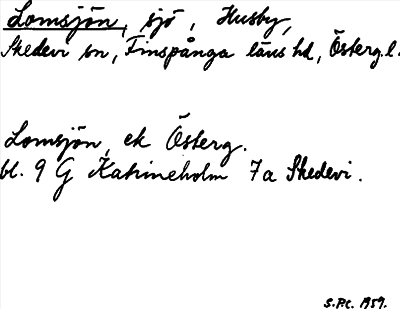 Lomsjön, sjö, Husby,
Skedevi sn, Finspånga läns hd, Österg. l.
Lomsjön, ek Österg.
bl. 9 G Katrineholm 7a Skedevi.
S.Pt. 1959.